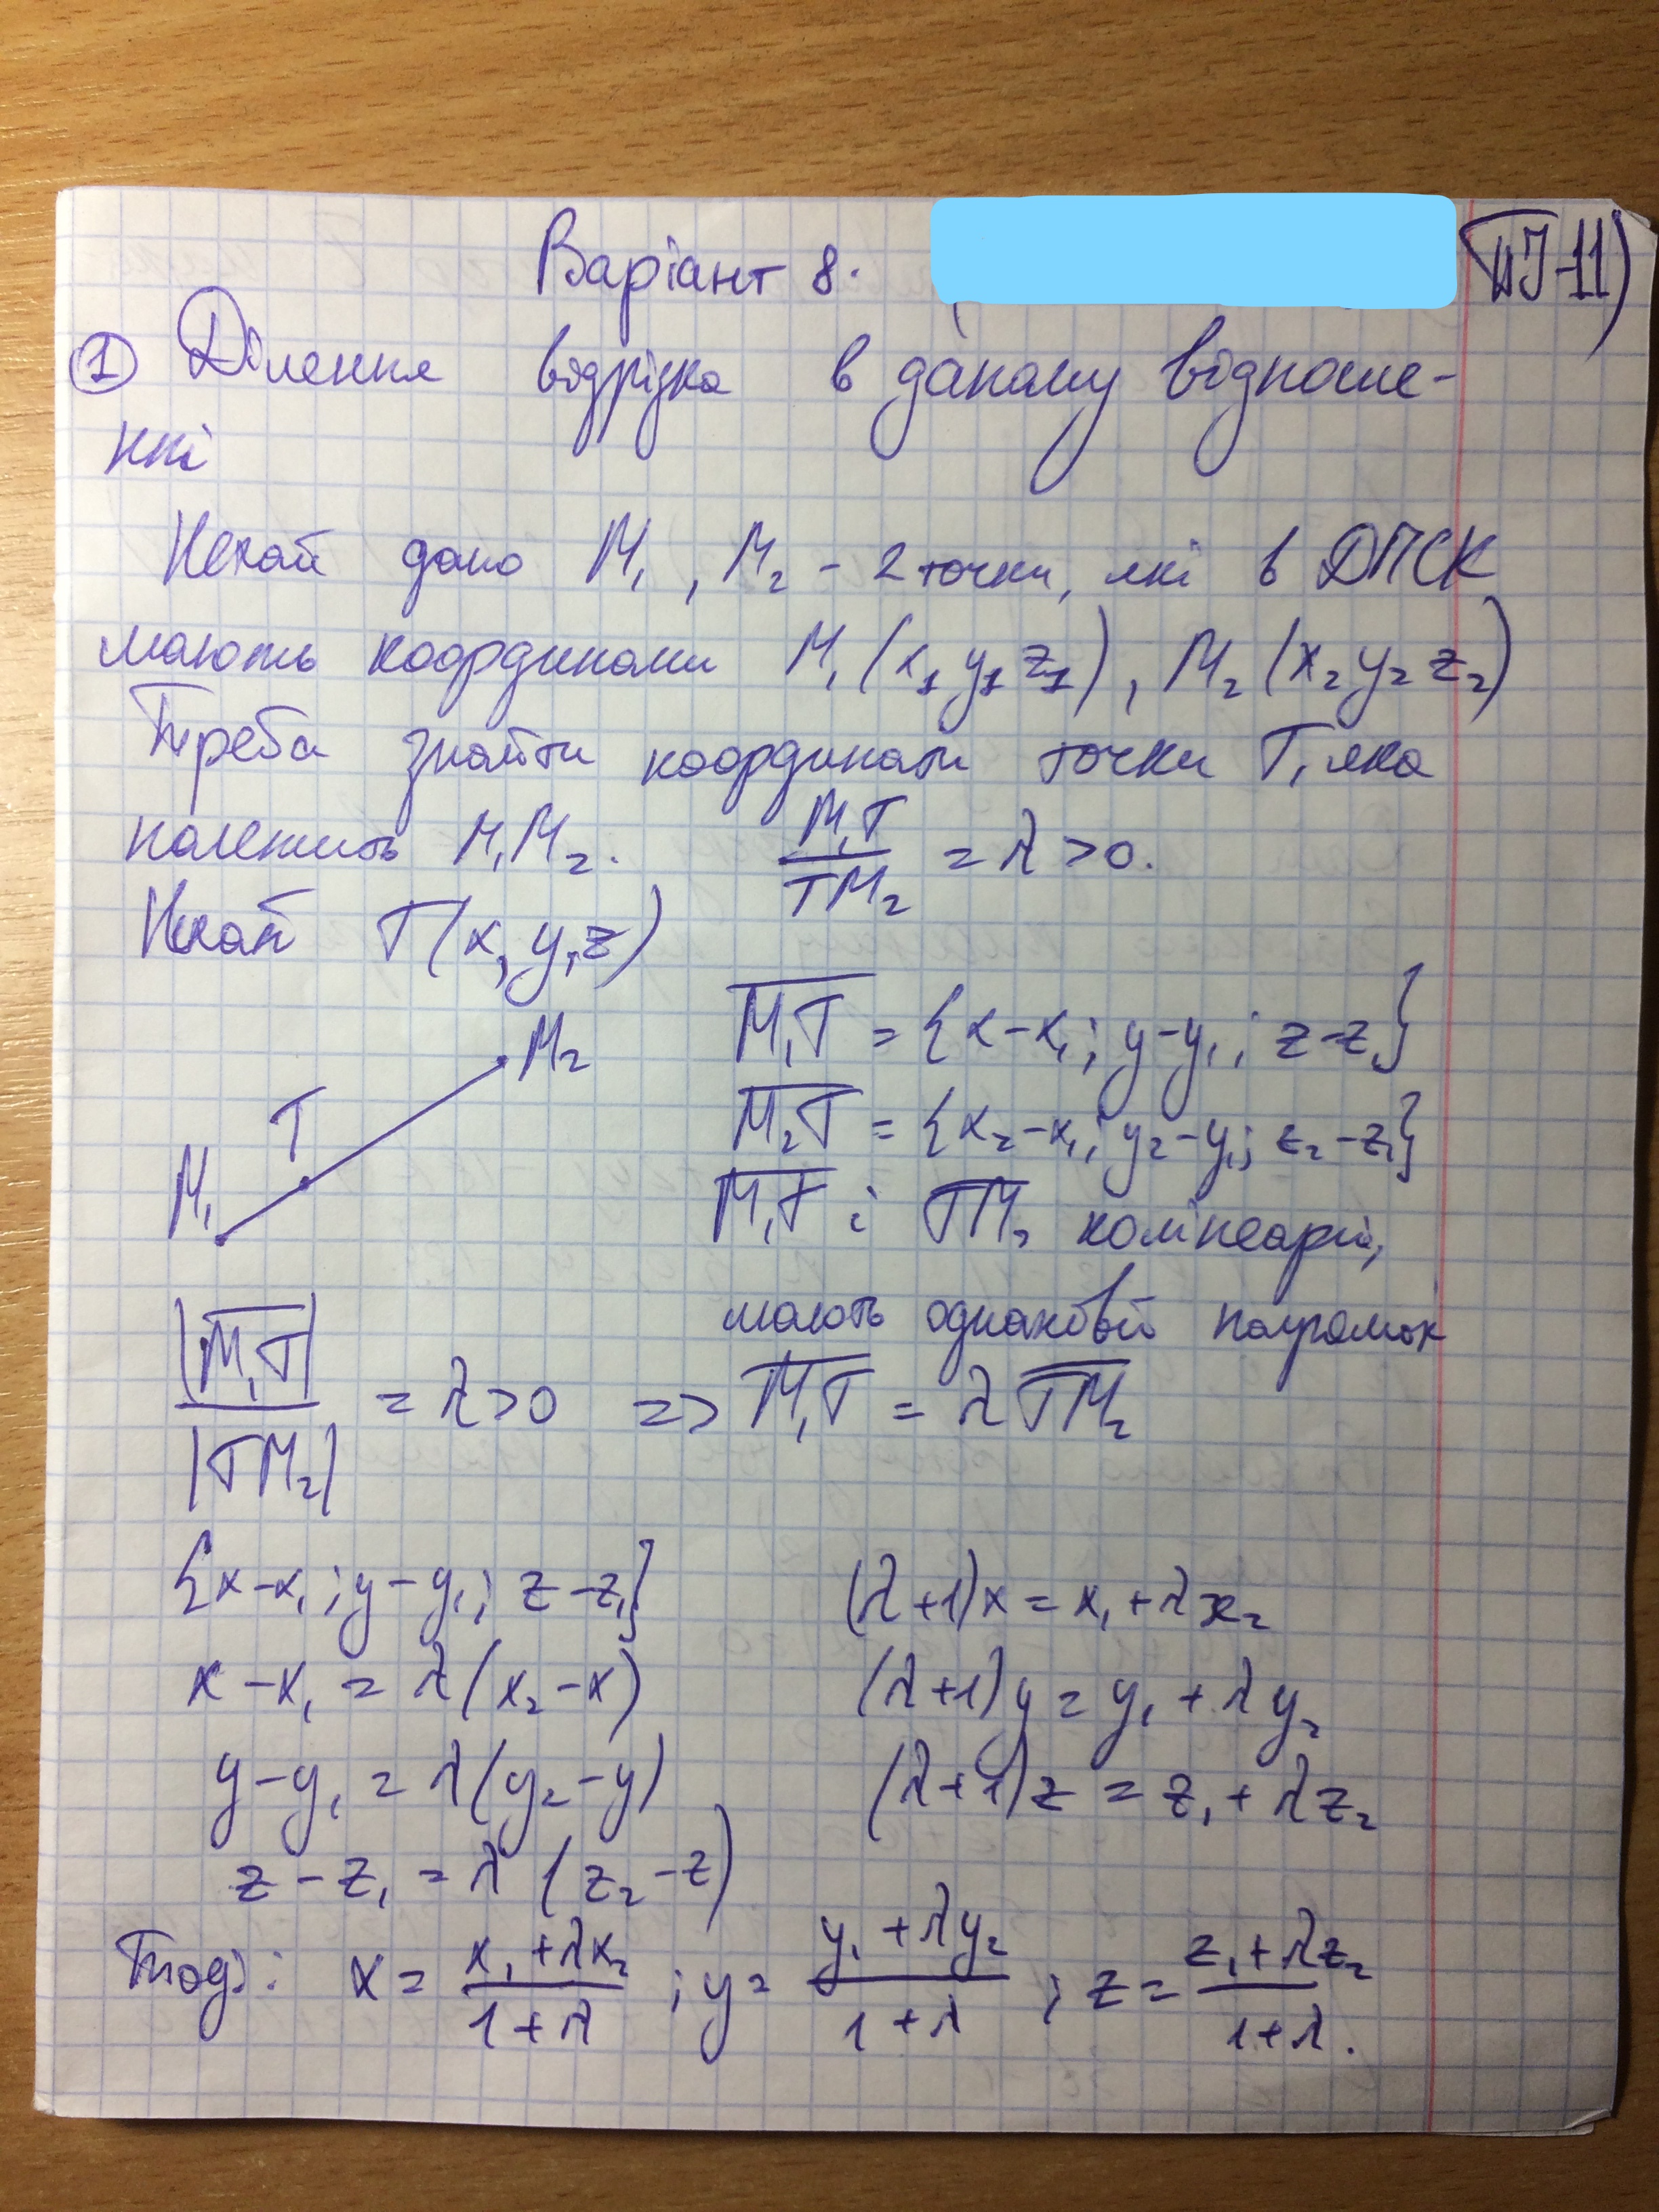 Варіант 8. ПІ-11)
① Ділення відрізка в даному відноше-
нні
Нехай дано M₁, M₂ - 2 точки, які в ДПСК
мають координати M₁(x₁ y₁ z₁), M₂(x₂ y₂ z₂)
Треба знайти координати точки T, яка
належить M₁M₂. M₁T/TM₂ = λ > 0.
Нехай T(x, y, z)
M₂
T
M₁
M̅₁̅T̅ = {x-x₁; y-y₁; z-z₁}
M̅₂̅T̅ = {x₂-x₁; y₂-y₁; z₂-z₁}
M̅₁̅T̅ і T̅M̅₂̅ колінеарні,
мають однаковий напрямок
|M̅₁̅T̅|/|TM₂| = λ > 0 => M̅₁̅T̅ = λ T̅M̅₂̅
{x-x₁; y-y₁; z-z₁}
x-x₁ = λ(x₂-x)
y-y₁ = λ(y₂-y)
z-z₁ = λ(z₂-z)
(λ+1)x = x₁+λx₂
(λ+1)y = y₁+λy₂
(λ+1)z = z₁+λz₂
Тоді: x = (x₁+λx₂)/(1+λ); y = (y₁+λy₂)/(1+λ); z = (z₁+λz₂)/(1+λ).